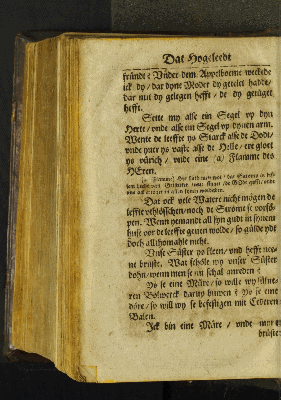 Dat Hogeleedt
fründt? Vnder dem Appelboeme weckede
ick dy / dar dyne Moder dy getelet hadde /
dar mit dy gelegen hefft / de dy getüget
hefft.
Sette my alse ein Segel vp dyn
Herte / vnde alse ein Segel vp dynen arm.
Wente de leeffte ys starck alse de Dodt /
vnde yuer ys vaste alse de Helle / ere gloet
ys vürich / vnde eine (a) Flamme des
HEren.
(a Flamme)
Dat ock vele Watere nicht mögen de
leeffte vthlösschen / noch de Ströme se vorsö-
pen. Wenn yemandt all syn gudt in synem
huse vor de leeffte geuen wolde / so gülde ydt
doch allthomahle nicht.
Vnse Süster ys kleen / vnd hefft nee-
ne brüste. Wat schöle wy vnser Süster
dohn / wenn men se nu schal anreden?
Ys se eine Müre / so wille wy sülue-
ren Bolwerck darup buwen? Ys se eine
döre / so will wy se befestigen mit Cederen
Balen.
Ick bin eine Müre / vnde myne
brüste